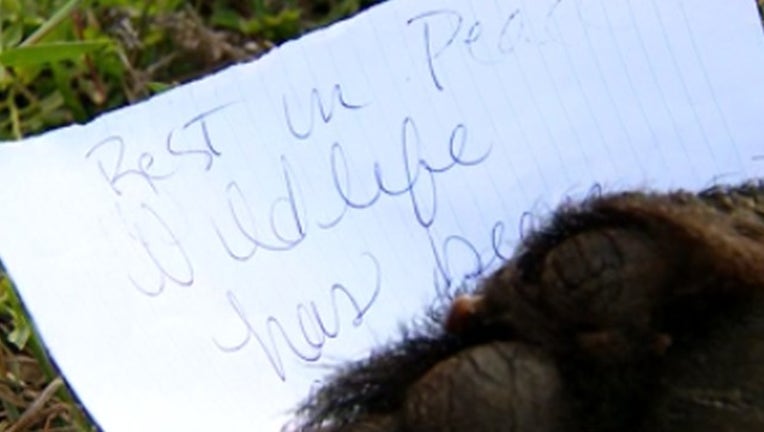 Rest in Peace
Wildlife
has bee